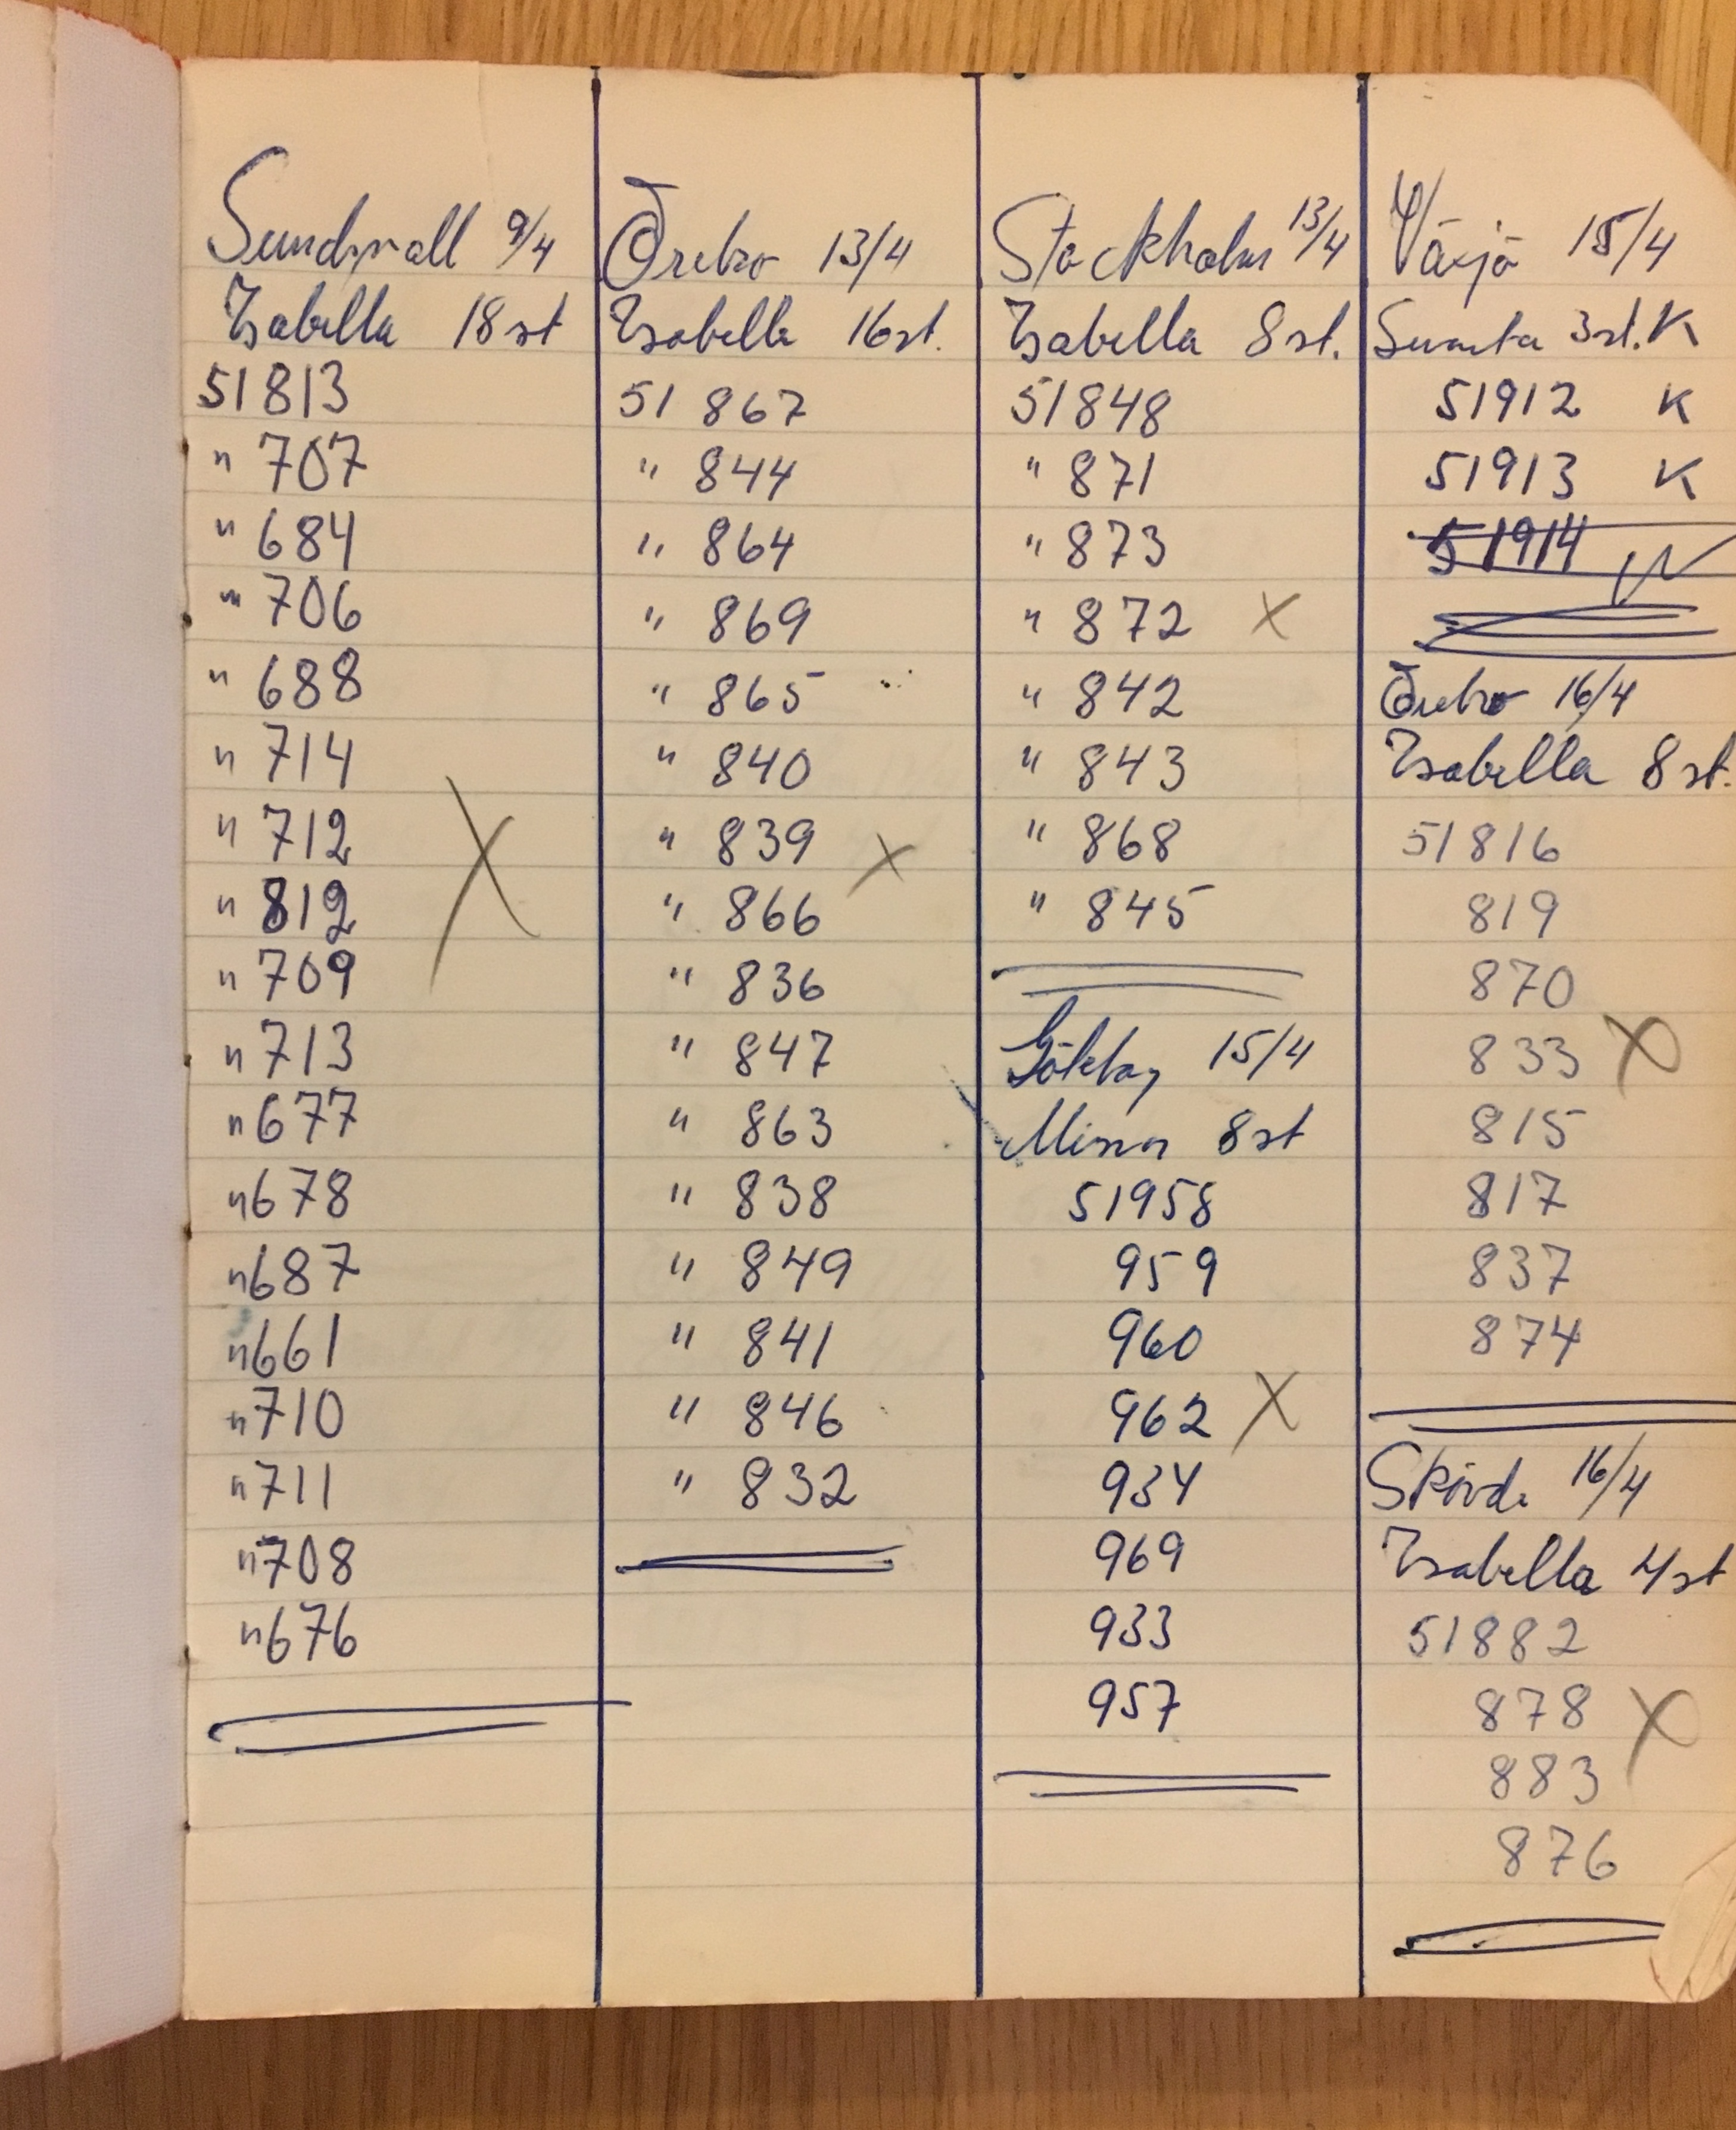 Sundsvall 9/4
Isabella 18 st
51813
" 707
" 684
" 706
" 688
" 714
" 712
" 812
" 709
" 713
" 677
" 678
" 687
" 661
" 710
" 711
" 708
" 676
X
Örebro 13/4
Isabella 16 st.
51 867
" 844
" 864
" 869
" 865
" 840
" 839 X
" 866
" 836
" 847
" 863
" 838
" 849
" 841
" 846
" 832
Stockholm 13/4
Isabella 8 st.
51848
" 871
" 873
" 872 X
" 842
" 843
" 868
" 845
15/4
8 st
51958
959
960
962 X
934
969
933
957
Växjö 15/4
3 st. K
51912 K
51913 K
51914
Örebro 16/4
Isabella 8 st.
51816
819
870
833 X
815
817
837
874
Skövde 16/4
Isabella 4 st
51882
878 X
883
876